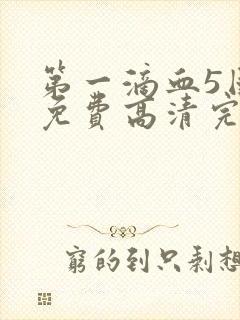 第一滴血5
免费高清完
窮的到只剩想